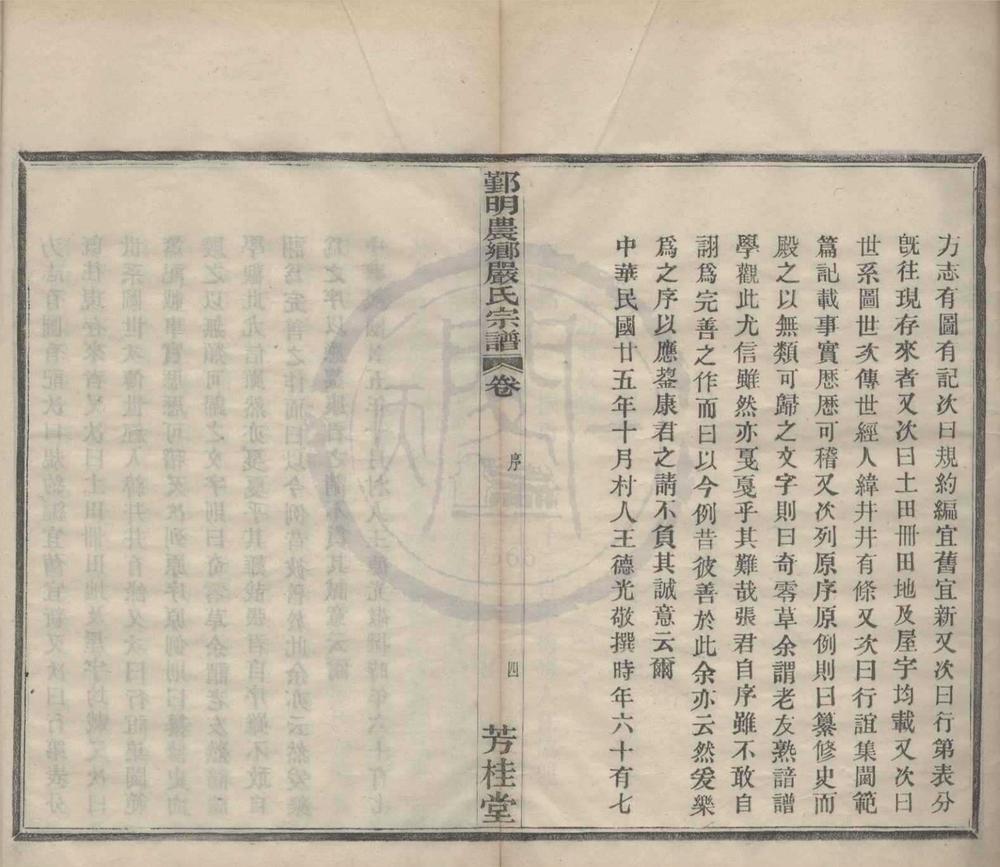 方志有圖有記次曰規約編宜舊宜新又次曰行第表分
旣往現存來者又次曰土田冊田地及屋宇均載又次曰
世系圖世次傳世經人緯井井有條又次曰行誼集閫範
篇記載事實厯厯可稽又次列原序原例則曰纂修史而
殿之以無類可歸之文字則曰奇零草余謂老友熟諳譜
學觀此尤信雖然亦戛戛乎其難哉張君自序雖不敢自
詡爲完善之作而曰以今例昔彼善於此余亦云然爰樂
爲之序以應鋆康君之請不負其誠意云爾
中華民國廿五年十月村人王德光敬撰時年六十有七
鄞明農鄉嚴氏宗譜 卷 序 四 芳桂堂